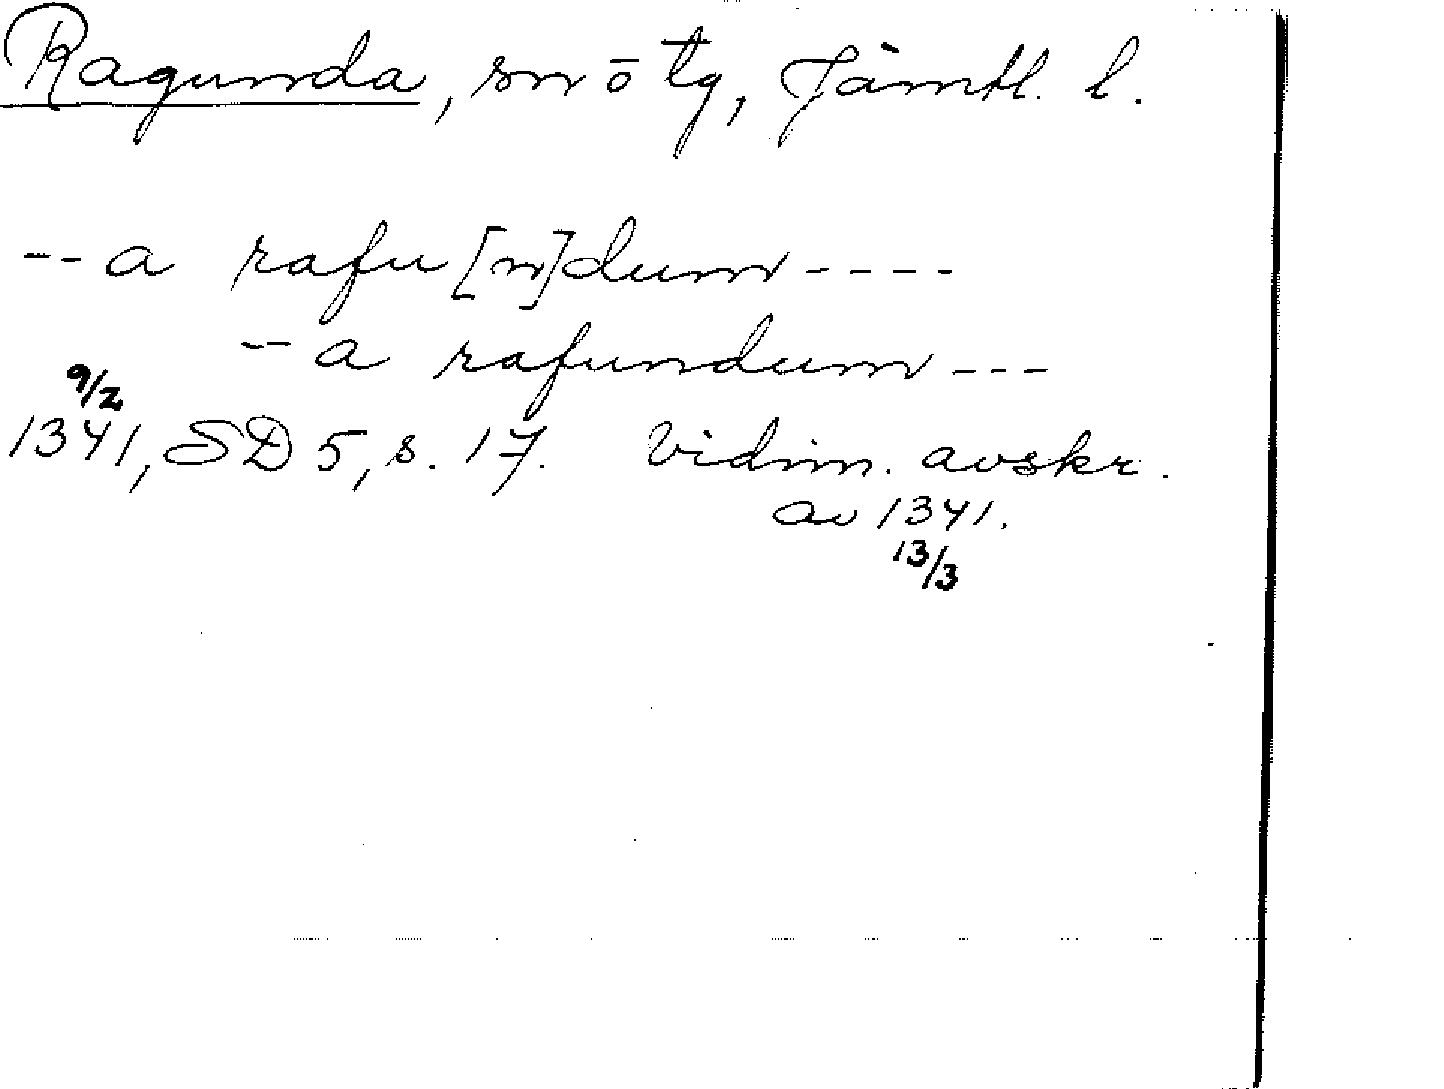 Ragunda, sn o tg, Jämtl. l.
-- a rafu[n]dum ----
-- a rafundum ---
9/2
1341, SD 5, s. 17. Vidim. avskr.
av 1341.
13/3